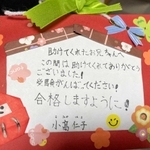 助けてくれたお兄ちゃんへ
この間は助けてくれてありがとう
ございました!
お勉強がんばってください!
合格しますように!
小高仁子